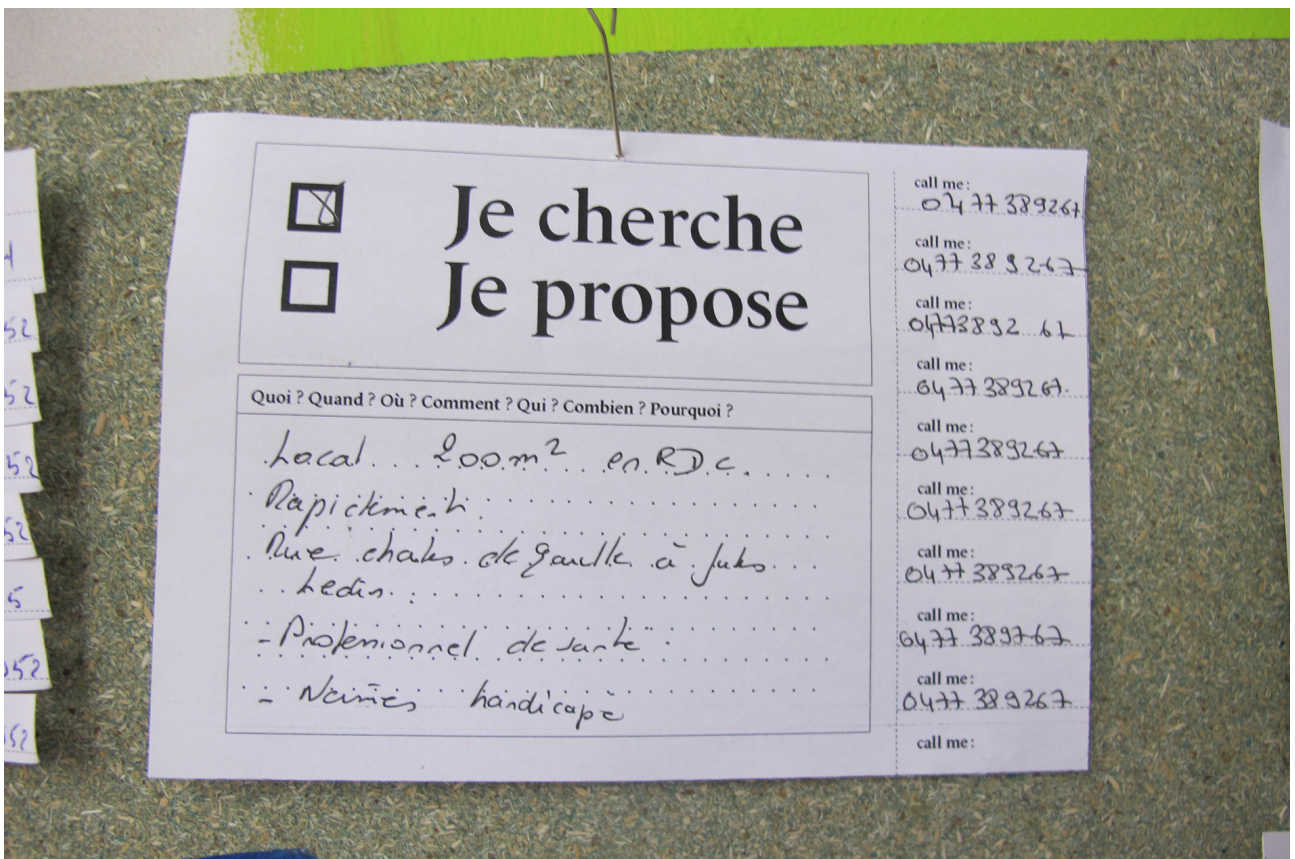 Je cherche
Je propose
Quoi ? Quand ? Où ? Comment ? Qui ? Combien ? Pourquoi ?
Local 200m² en RDC.
Rapidement.
Rue charles de gaulle à
- Professionnel de santé
- handicapé
call me :
0477389267
call me :
0477389267
call me :
0477389267
call me :
0477389267.
call me :
0477389267
call me :
0477389267
call me :
0477389267
call me :
0477389767
call me :
0477389267
call me :
52
52
52
52
5
052
52